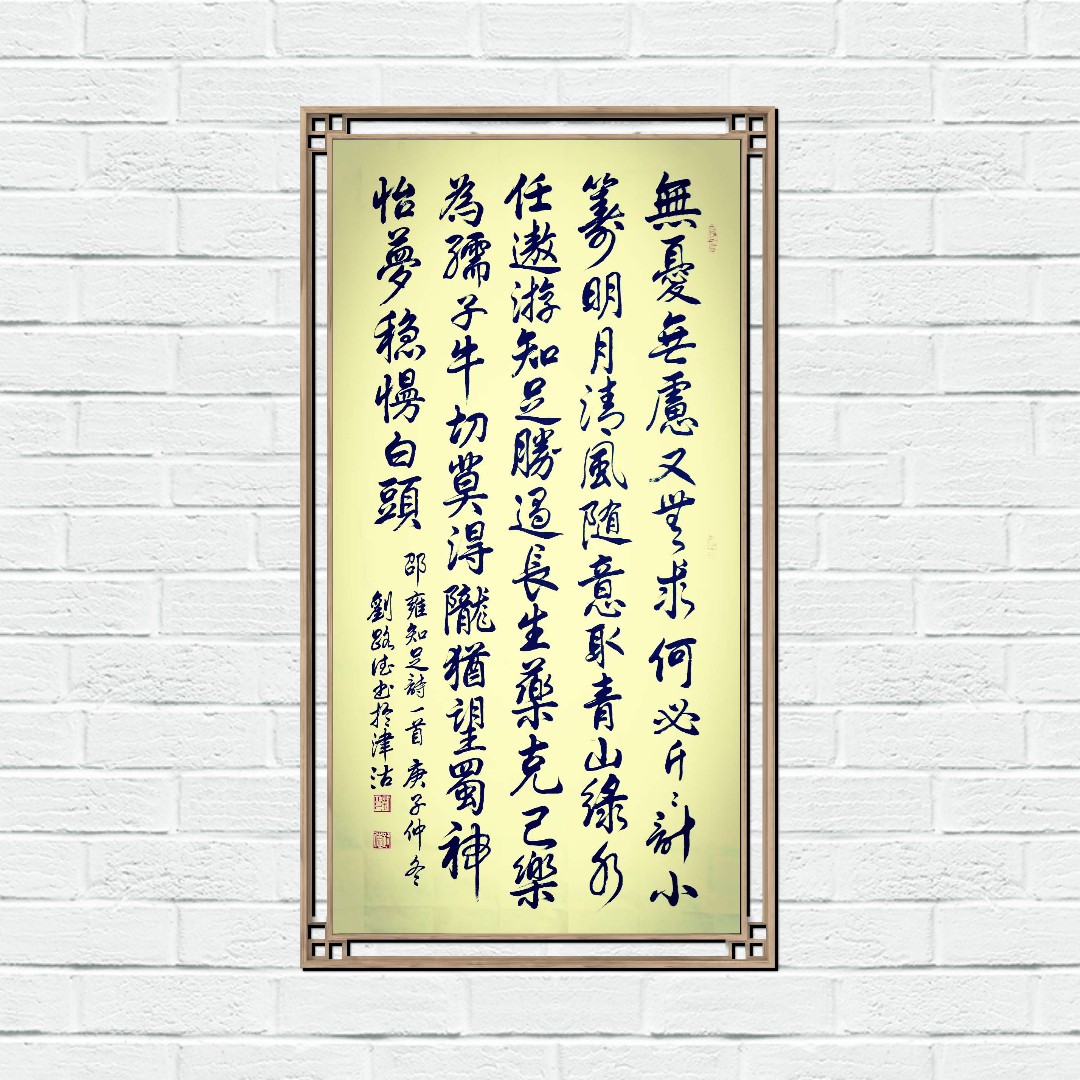 無憂無慮又無求何必斤斤計小
籌明月清風随意取青山綠水
任遨游知足勝過長生藥克己樂
為孺子牛切莫得隴猶望蜀神
怡夢稳慢白頭
邵雍知足詩一首 庚子仲冬
劉路书於津沽